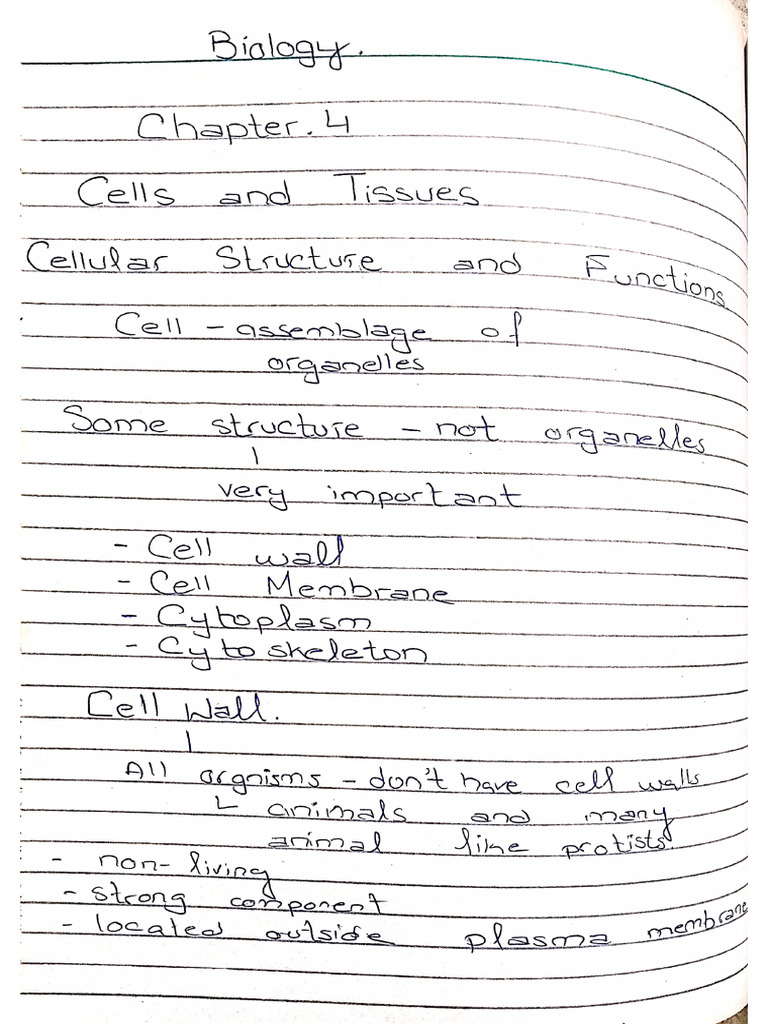 Biology.
Chapter. 4
Cells and Tissues
Cellular Structure and Functions
Cell - assemblage of
organelles
Some structure - not organelles
very important
- Cell wall
- Cell Membrane
- Cytoplasm
- Cyto skeleton
Cell Wall.
All orgnisms - don't have cell walls
animals and many
animal like protists.
- non-living
- strong component
- located outside plasma membrane